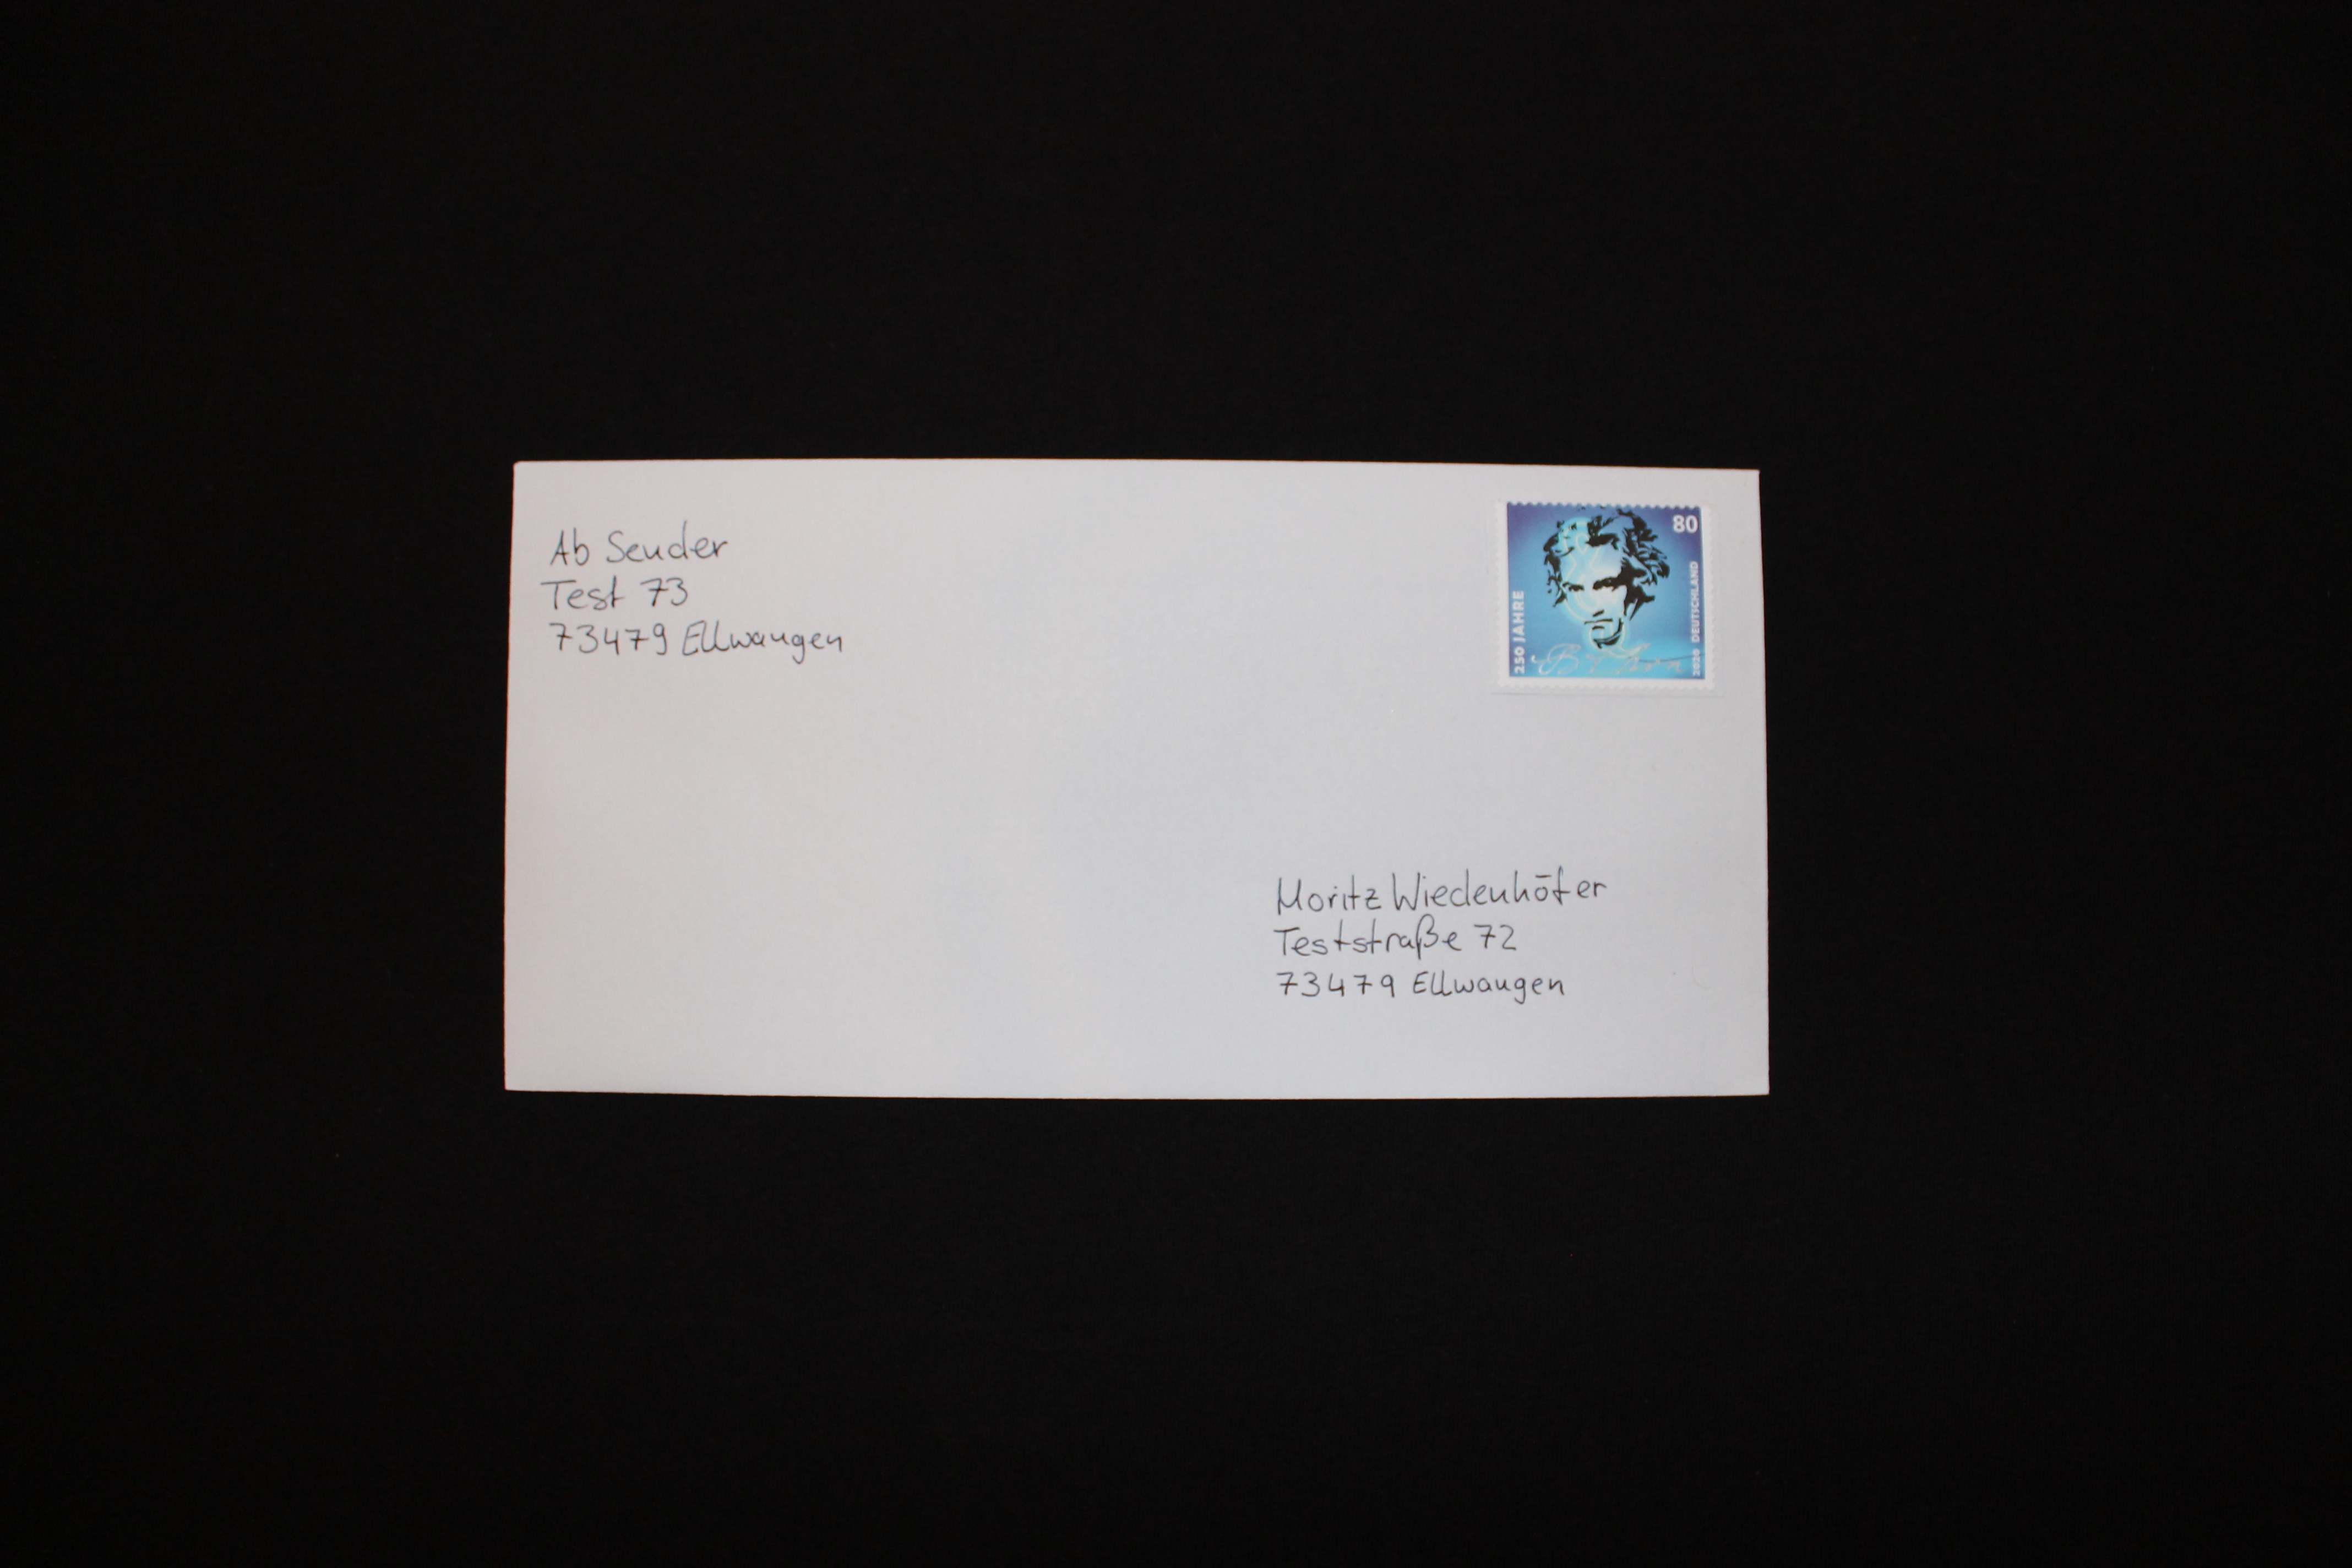 Ab Sender
Test 73
73479 Ellwangen
80
250 JAHRE
2020 DEUTSCHLAND
Moritz Wiedenhöfer
Teststraße 72
73479 Ellwangen